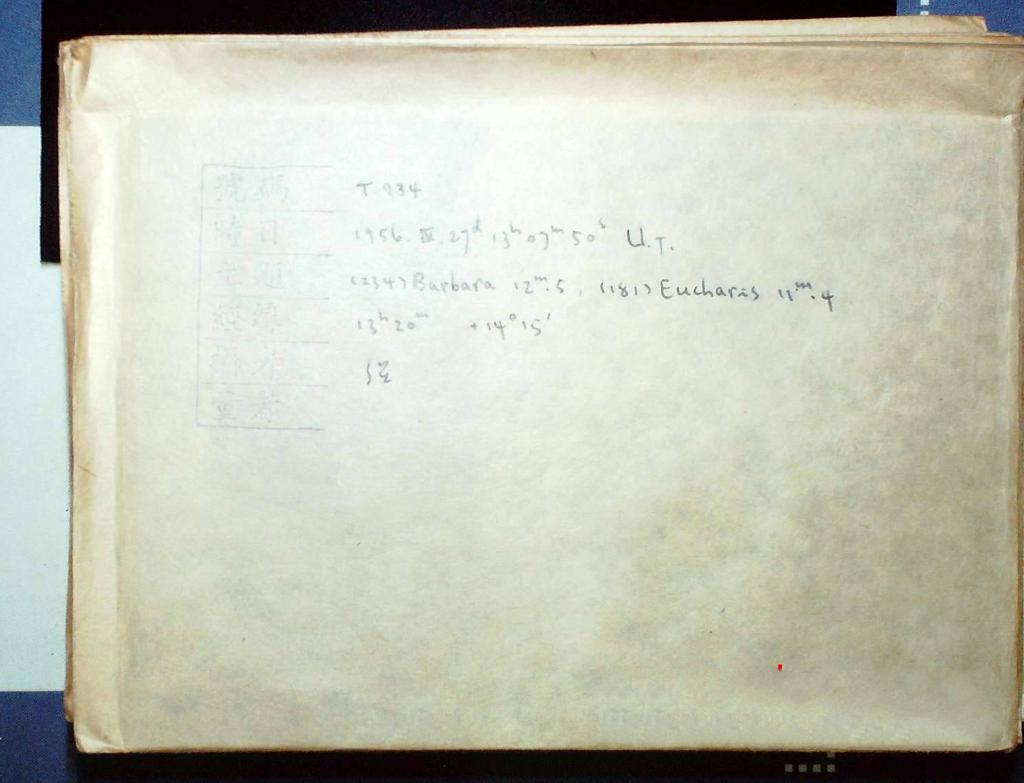 號碼 T 934
時日 1956. IV. 27ᵈ 13ʰ 07ᵐ 50ˢ U.T.
(234) Barbara 12ᵐ.5, (181) Eucharis 11ᵐ.4
13ʰ 20ᵐ +14° 15′